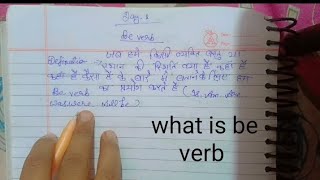 Day. 1
Be verb
Definition जब हमें किसी व्यक्ति वस्तु या
स्थान की स्थिति क्या है कहां है
कहां है कैसा है के बारे में बताने के लिए हम
Be verb का प्रयोग करते हैं (is, are, am
was, were, will be)
what is be
verb